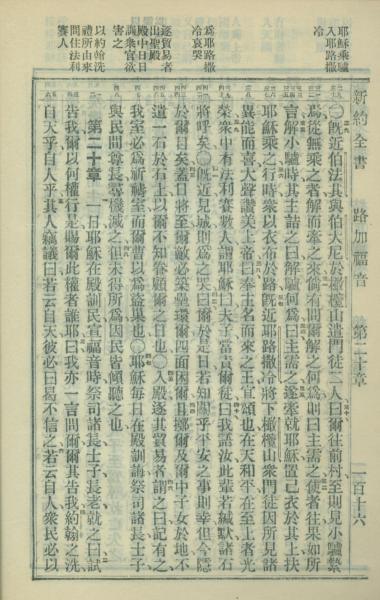 新約全書 路加福音 第二十章 一百十六
耶穌乘驢入耶路撒冷
為耶路撒冷哀哭
逐貿易者出聖殿
殿中日日訓衆官欲害之
以約翰洗禮所由來問住法利賽人
〇既近伯法其與伯大尼於橄欖山遣門徒二人曰爾往前村至則見小驢縶
焉從無乘之者解而牽之來倘有問爾解之何為則曰主需之使者往果如所
言解小驢時其主詰之曰解驢何為曰主需之遂牽就耶穌置己衣於其上扶
耶穌乘之行時衆以衣布於路既近耶路撒冷將下橄欖山衆門徒因所見諸
異能而喜大聲讚美上帝曰奉主名而來之王宜頌也在天和平在至上者光
榮衆中有法利賽數人謂耶穌曰夫子當責爾徒曰我語汝此輩若緘默諸石
將呼矣〇既近見城則為之哭曰爾於是日若知關乎平安之事則幸但今隱
於爾目矣蓋日將至爾敵必築壘環爾四面困爾且擲爾及爾中子女於地不
遺一石於石上以爾不知眷顧爾之日也〇入殿逐其貿易者謂之曰記有之
我室必為祈禱室而爾曹以為盜巢也〇耶穌每日在殿訓誨祭司諸長士子
與民間尊長尋機滅之但未得所為因民皆傾聽之也
第二十章 一日耶穌在殿訓民宣福音時祭司諸長士子長老就之曰試
告我爾以何權行是賜爾此權者誰耶曰我亦一言問爾爾其告我約翰之洗
自天乎自人乎其人竊議曰若云自天彼必曰曷不信之若云自人衆民必以